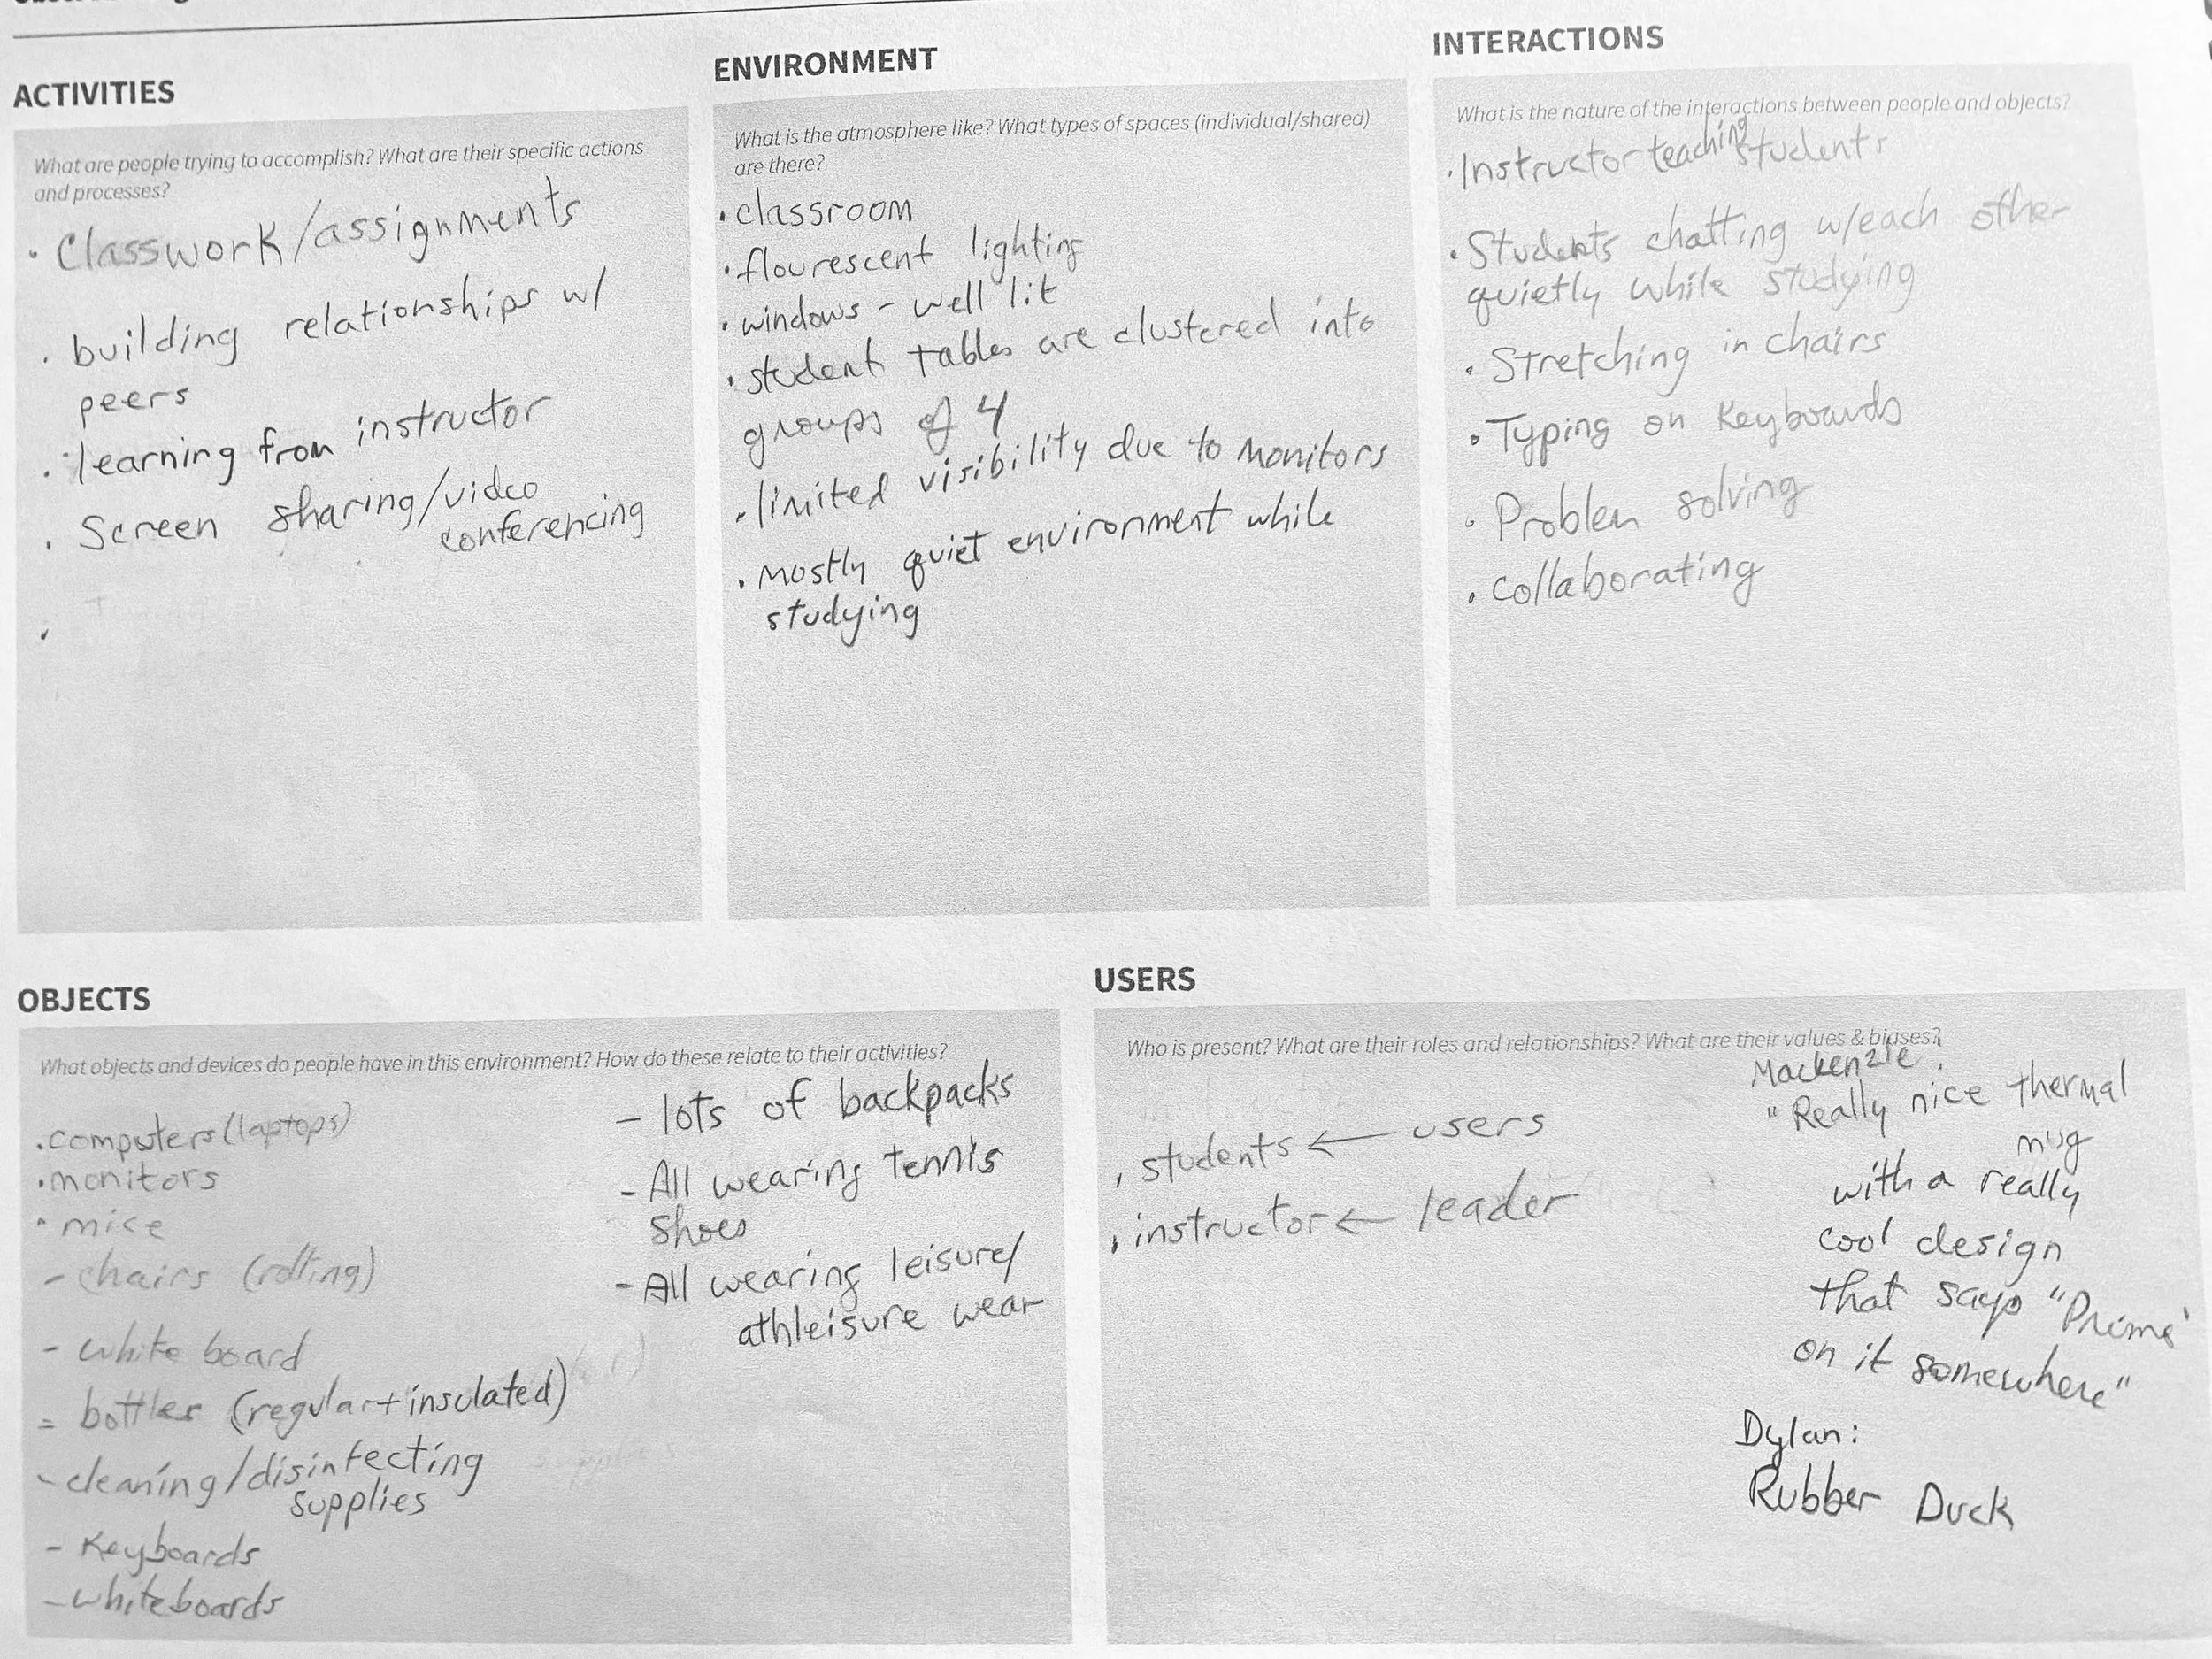 ACTIVITIES
What are people trying to accomplish? What are their specific actions
and processes?
· Classwork/assignments
· building relationships w/
peers
· learning from instructor
· Screen sharing/video
conferencing
·
ENVIRONMENT
What is the atmosphere like? What types of spaces (individual/shared)
are there?
· classroom
· flourescent lighting
· windows - well lit
· student tables are clustered into
groups of 4
· limited visibility due to monitors
· mostly quiet environment while
studying
INTERACTIONS
What is the nature of the interactions between people and objects?
· Instructor teaching students
· Students chatting w/each other
quietly while studying
· Stretching in chairs
· Typing on Keyboards
· Problem solving
· collaborating
OBJECTS
What objects and devices do people have in this environment? How do these relate to their activities?
· computers (laptops)
· monitors
· mice
- chairs (rolling)
- white board
= bottles (regular + insulated)
- cleaning/disinfecting
supplies
- Keyboards
- whiteboards
- lots of backpacks
- All wearing tennis
shoes
- All wearing leisure/
athleisure wear
USERS
Who is present? What are their roles and relationships? What are their values & biases?
· students ← users
· instructor ← leader
Mackenzie:
"Really nice thermal
mug
with a really
cool design
that says "Prime'
on it somewhere"
Dylan:
Rubber Duck